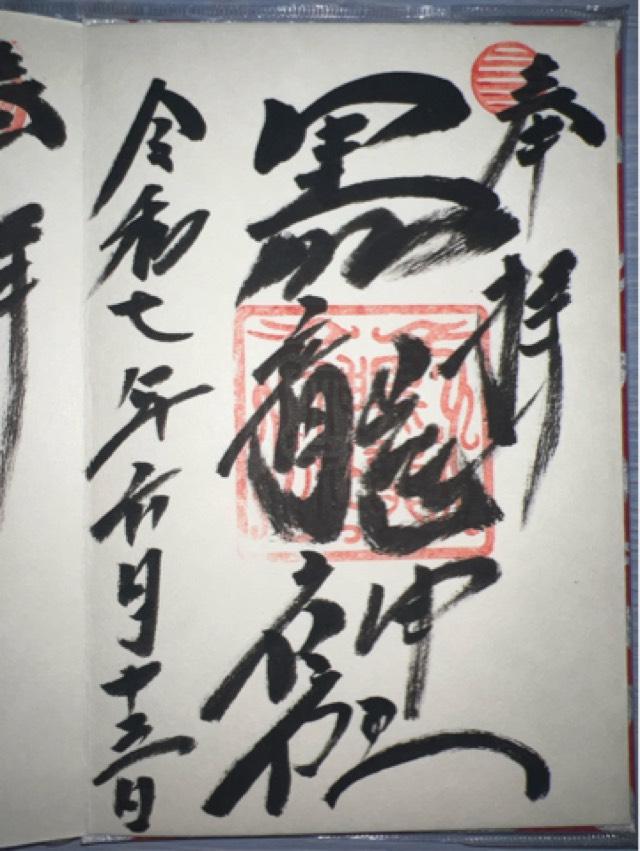 奉拝
黒龍神社
令和七年六月十三日